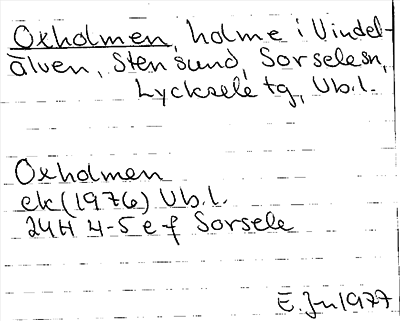 Oxholmen, holme i Vindel-
älven, Stensund, Sorsele sn,
Lycksele tg, Vb.l.
Oxholmen
ek (1976) Vb.l.
24H 4-5 e f Sorsele
E. Jn 1977